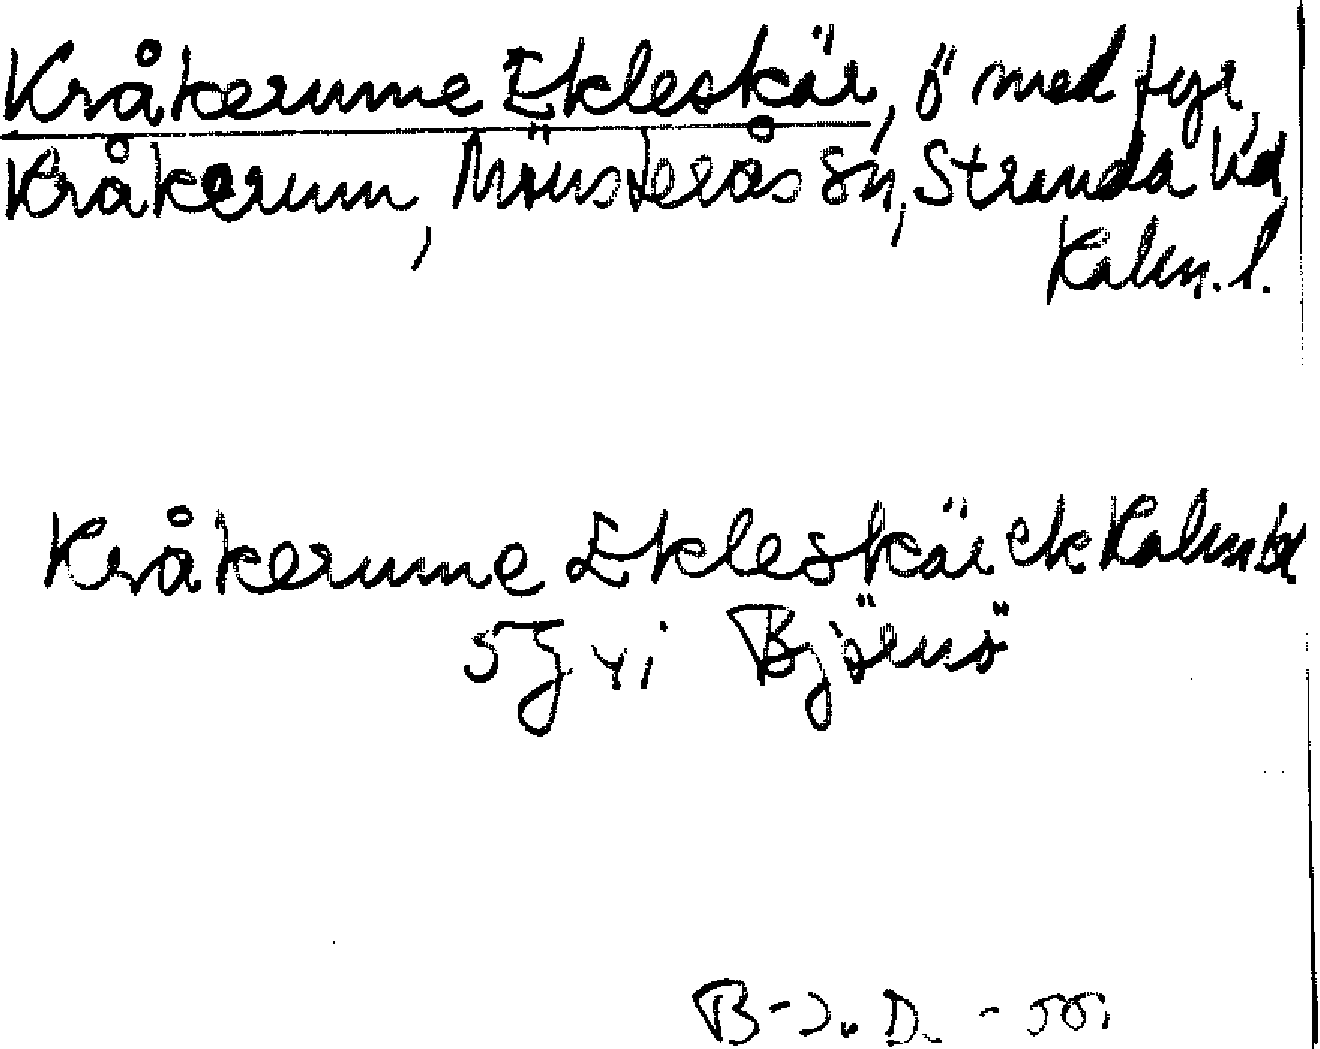 Kråkerume Ekleskär, ö med fyr,
Kråkerum, Mönsterås sn, Stranda hd
Kalm. l.
Kråkerume Ekleskär ek Kalmbl
5J vi Björnö
B-J. D. - 55.